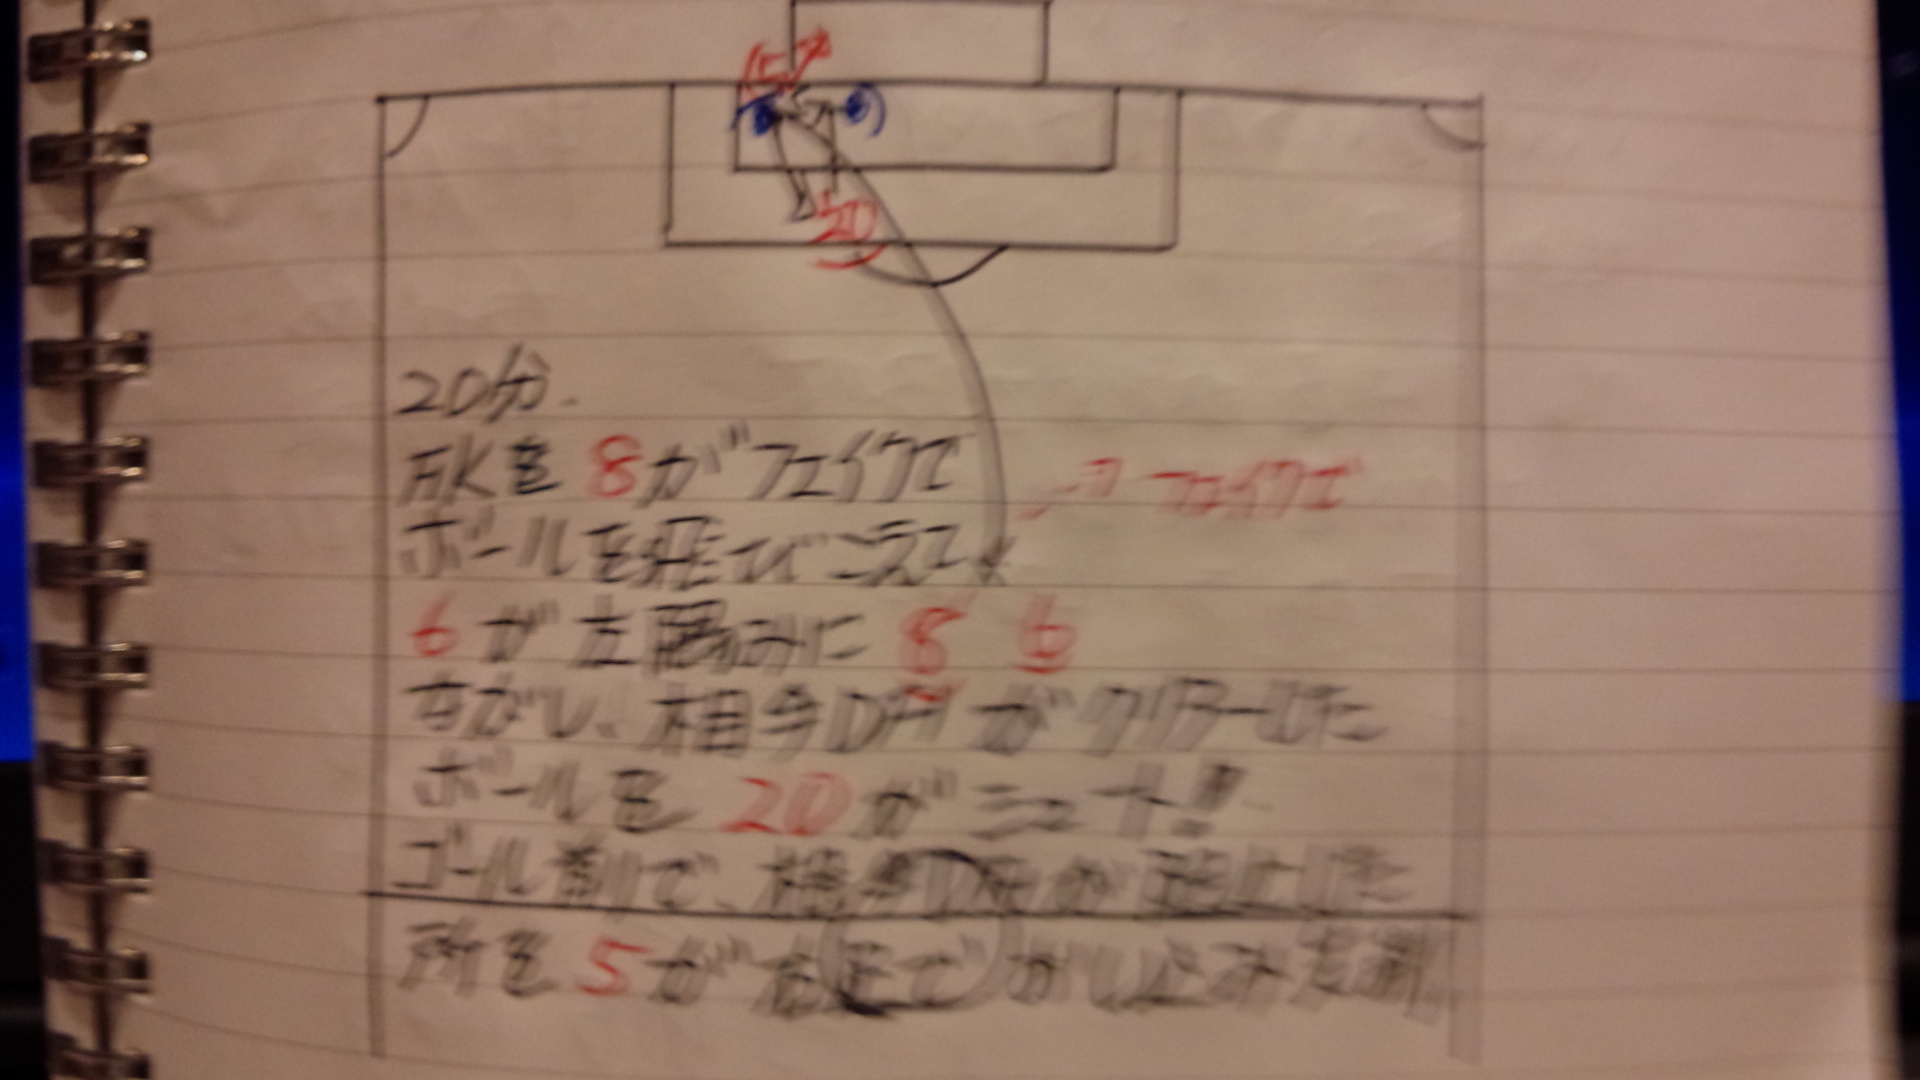 5
20
20分.
FKを8がフェイクで
フェイクで
ボールを飛びこえて
6が左隅みに
8 6
ながし、相手DFがクリアーした
ボールを20がシュート!!
ゴール前で、相手DFが阻止した
所を5が左足で